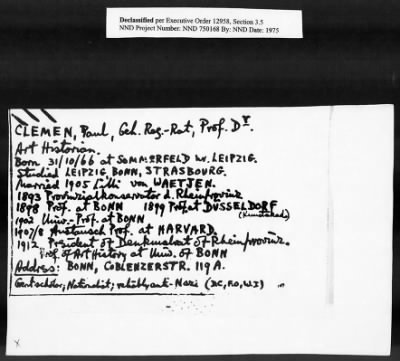 Declassified per Executive Order 12958, Section 3.5
NND Project Number: NND 750168 By: NND Date: 1975
CLEMEN, Paul, Geh. Reg.-Rat, Prof. Dr.
Art Historian.
Born 31/10/66 at SOMMERFELD nr. LEIPZIG.
Studied LEIPZIG, BONN, STRASBOURG.
Married 1905 Lilli von WAETJEN.
1893 Provinzialkonservator d. Rheinprovinz
1898 Prof. at BONN 1899 Prof. at DUSSELDORF
(Kunstakad.)
1902 Univ.-Prof. at BONN
1907/8 Austausch Prof. at HARVARD.
1912. President of Denkmalsrat of Rheinprovinz.
Prof. of Art History at Univ. of BONN
Address: BONN, COBLENZERSTR. 119 A.
Great scholar; Nationalist; reliably anti-Nazi (DC, F.O., W.I)
X